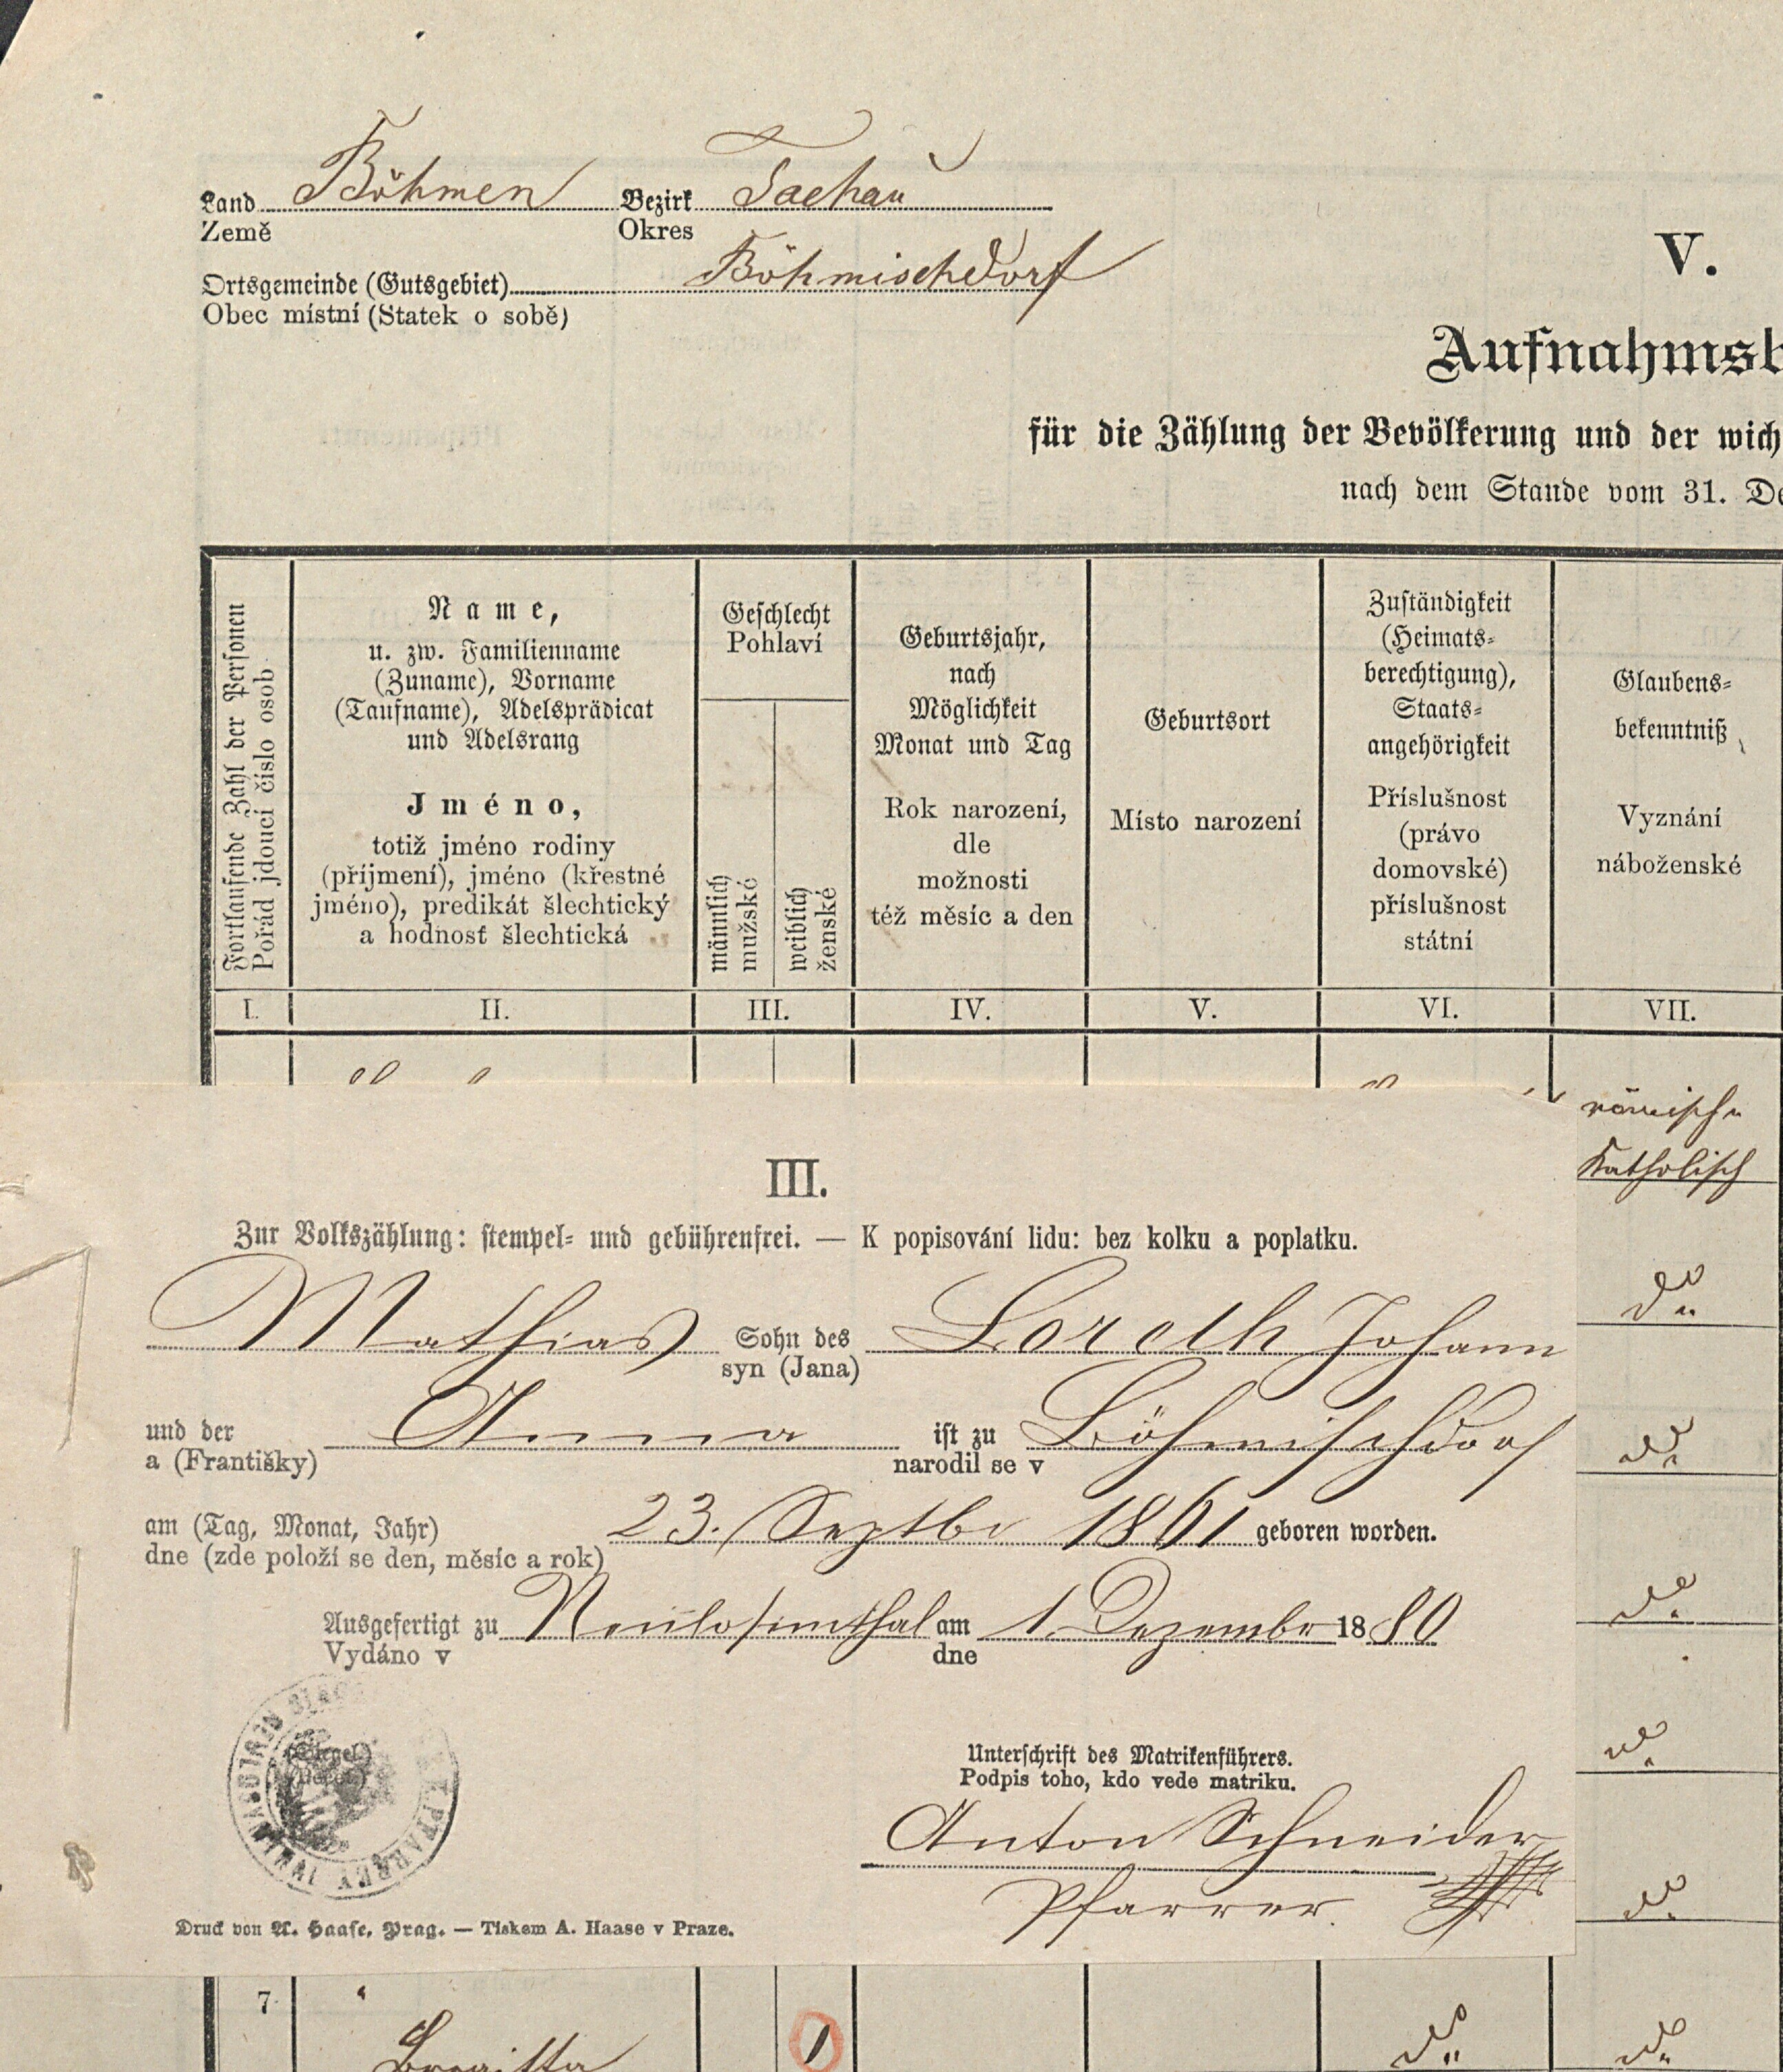 Land Böhmen Bezirk Tachau
Země Okres
Ortsgemeinde (Gutsgebiet) Böhmischdorf
Obec místní (Statek o sobě)
V.
Aufnahmsb
für die Zählung der Bevölkerung und der wich
nach dem Stande vom 31. De
Fortlaufende Zahl der Personen
Pořád jdoucí číslo osob
Name,
u. zw. Familienname
(Zuname), Vorname
(Taufname), Adelsprädicat
und Adelsrang
Jméno,
totiž jméno rodiny
(příjmení), jméno (křestné
jméno), predikát šlechtický
a hodnosť šlechtická
Geschlecht
Pohlaví
männlich
mužské
weiblich
ženské
Geburtsjahr,
nach
Möglichkeit
Monat und Tag
Rok narození,
dle
možnosti
též měsíc a den
Geburtsort
Místo narození
Zuständigkeit
(Heimats-
berechtigung),
Staats-
angehörigkeit
Příslušnost
(právo
domovské)
příslušnost
státní
Glaubens-
bekenntniß
Vyznání
náboženské
I. II. III. IV. V. VI. VII.
römisch
Katholisch
III.
Zur Volkszählung: stempel- und gebührenfrei. — K popisování lidu: bez kolku a poplatku.
Mathias Sohn des Loreth Johann
syn (Jana)
und der Anna ist zu Böhmischdorf
a (Františky) narodil se v
am (Tag, Monat, Jahr) 23. Septbr 1861 geboren worden.
dne (zde položí se den, měsíc a rok)
Ausgefertigt zu Neulosimthal am 1. Dezember 1880
Vydáno v dne
(Siegel)
Unterschrift des Matrikenführers.
Podpis toho, kdo vede matriku.
Anton Schneider
Pfarrer
Druck von A. Haase, Prag. — Tiskem A. Haase v Praze.
7
Brigitta 1